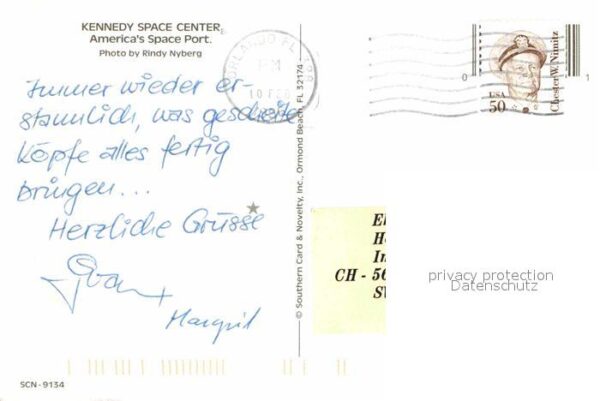 KENNEDY SPACE CENTER
America's Space Port.
Photo by Rindy Nyberg
Immer wieder er-
staunlich, was gescheite
Köpfe alles fertig
bringen...
Herzliche Grüsse
Margrit
SCN-9134
© Southern Card & Novelty, Inc., Ormond Beach, FL 32174
ORLANDO FL
PM
10 FEB
0
1
USA
50
Chester W. Nimitz
CH - 56
privacy protection
Datenschutz